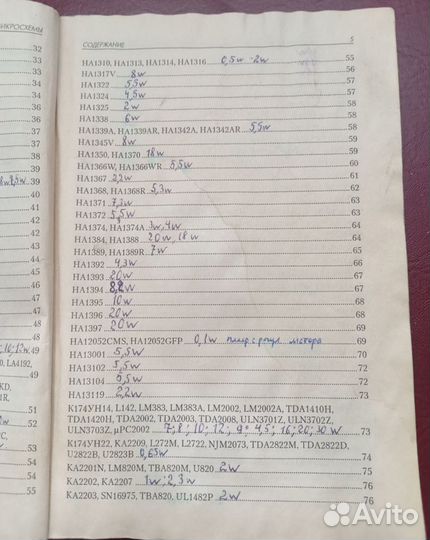 МИКРОСХЕМЫ
СОДЕРЖАНИЕ 5
32
33
33
34
34
35
36
37
37
38
39
48
48
49
LA4192,
51
52
53
54
55
HA1310, HA1313, HA1314, HA1316 0,5w 2w 55
HA1317V 8w 56
HA1322 5,5w 57
HA1324 4,5w 58
HA1325 2w 58
HA1338 6w 58
HA1339A, HA1339AR, HA1342A, HA1342AR 5,5w 58
HA1345V 8w 59
HA1350, HA1370 18w 59
HA1366W, HA1366WR 5,5w 60
HA1367 2,2w 61
HA1368, HA1368R 5,3w 62
HA1371 7,3w 62
HA1372 5,5w 63
HA1374, HA1374A 3w, 4w 64
HA1384, HA1388 20w, 18w 65
HA1389, HA1389R 7w 65
HA1392 4,3w 66
HA1393 20w 67
HA1394 8,2w 67
HA1395 10w 68
HA1396 20w 68
HA1397 20w 69
HA12052CMS, HA12052GFP 0,1w мотора 70
HA13001 5,5w 71
HA13102 5,5w 72
HA13104 5,5w 73
HA13119 2,2w 73
К174УН14, L142, LM383, LM383A, LM2002, LM2002A, TDA1410H,
TDA1420H, TDA2002, TDA2003, TDA2008, ULN3701Z, ULN3702Z,
ULN3703Z, µPC2002 7; 8; 10; 12; 9; 4,5; 16; 20; 30w 73
К174УН22, KA2209, L272M, L2722, NJM2073, TDA2822M, TDA2822D,
U2822B, U2823B 0,65w 74
KA2201N, LM820M, TBA820M, U820 2w 75
KA2202, KA2207 1w; 2,3w 76
KA2203, SN16975, TBA820, UL1482P 2w 76
Avito